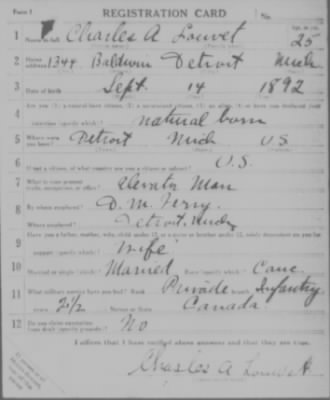 Form 1 REGISTRATION CARD No.
1 Name in full Charles A Louvet Age, in yrs. 25
2 Home address 1344 Baldwin Detroit Mich
3 Date of birth Sept. 14 1892
4 Are you (1) a natural-born citizen, (2) a naturalized citizen, (3) an alien, (4) or have you declared your
intention (specify which)? natural born
5 Where were you born? Detroit Mich U.S.
6 If not a citizen, of what country are you a citizen or subject? U.S.
7 What is your present trade, occupation, or office? Elevator Man
8 By whom employed? D. M. Ferry.
Where employed? Detroit, Mich
9 Have you a father, mother, wife, child under 12, or a sister or brother under 12, solely dependent on you for
support (specify which)? Wife
10 Married or single (which)? Married Race (specify which)? Cauc
11 What military service have you had? Rank Private branch Infantry
years 2½ Nation or State Canada
12 Do you claim exemption from draft (specify grounds)? No
I affirm that I have verified above answers and that they are true.
Charles A Louvet